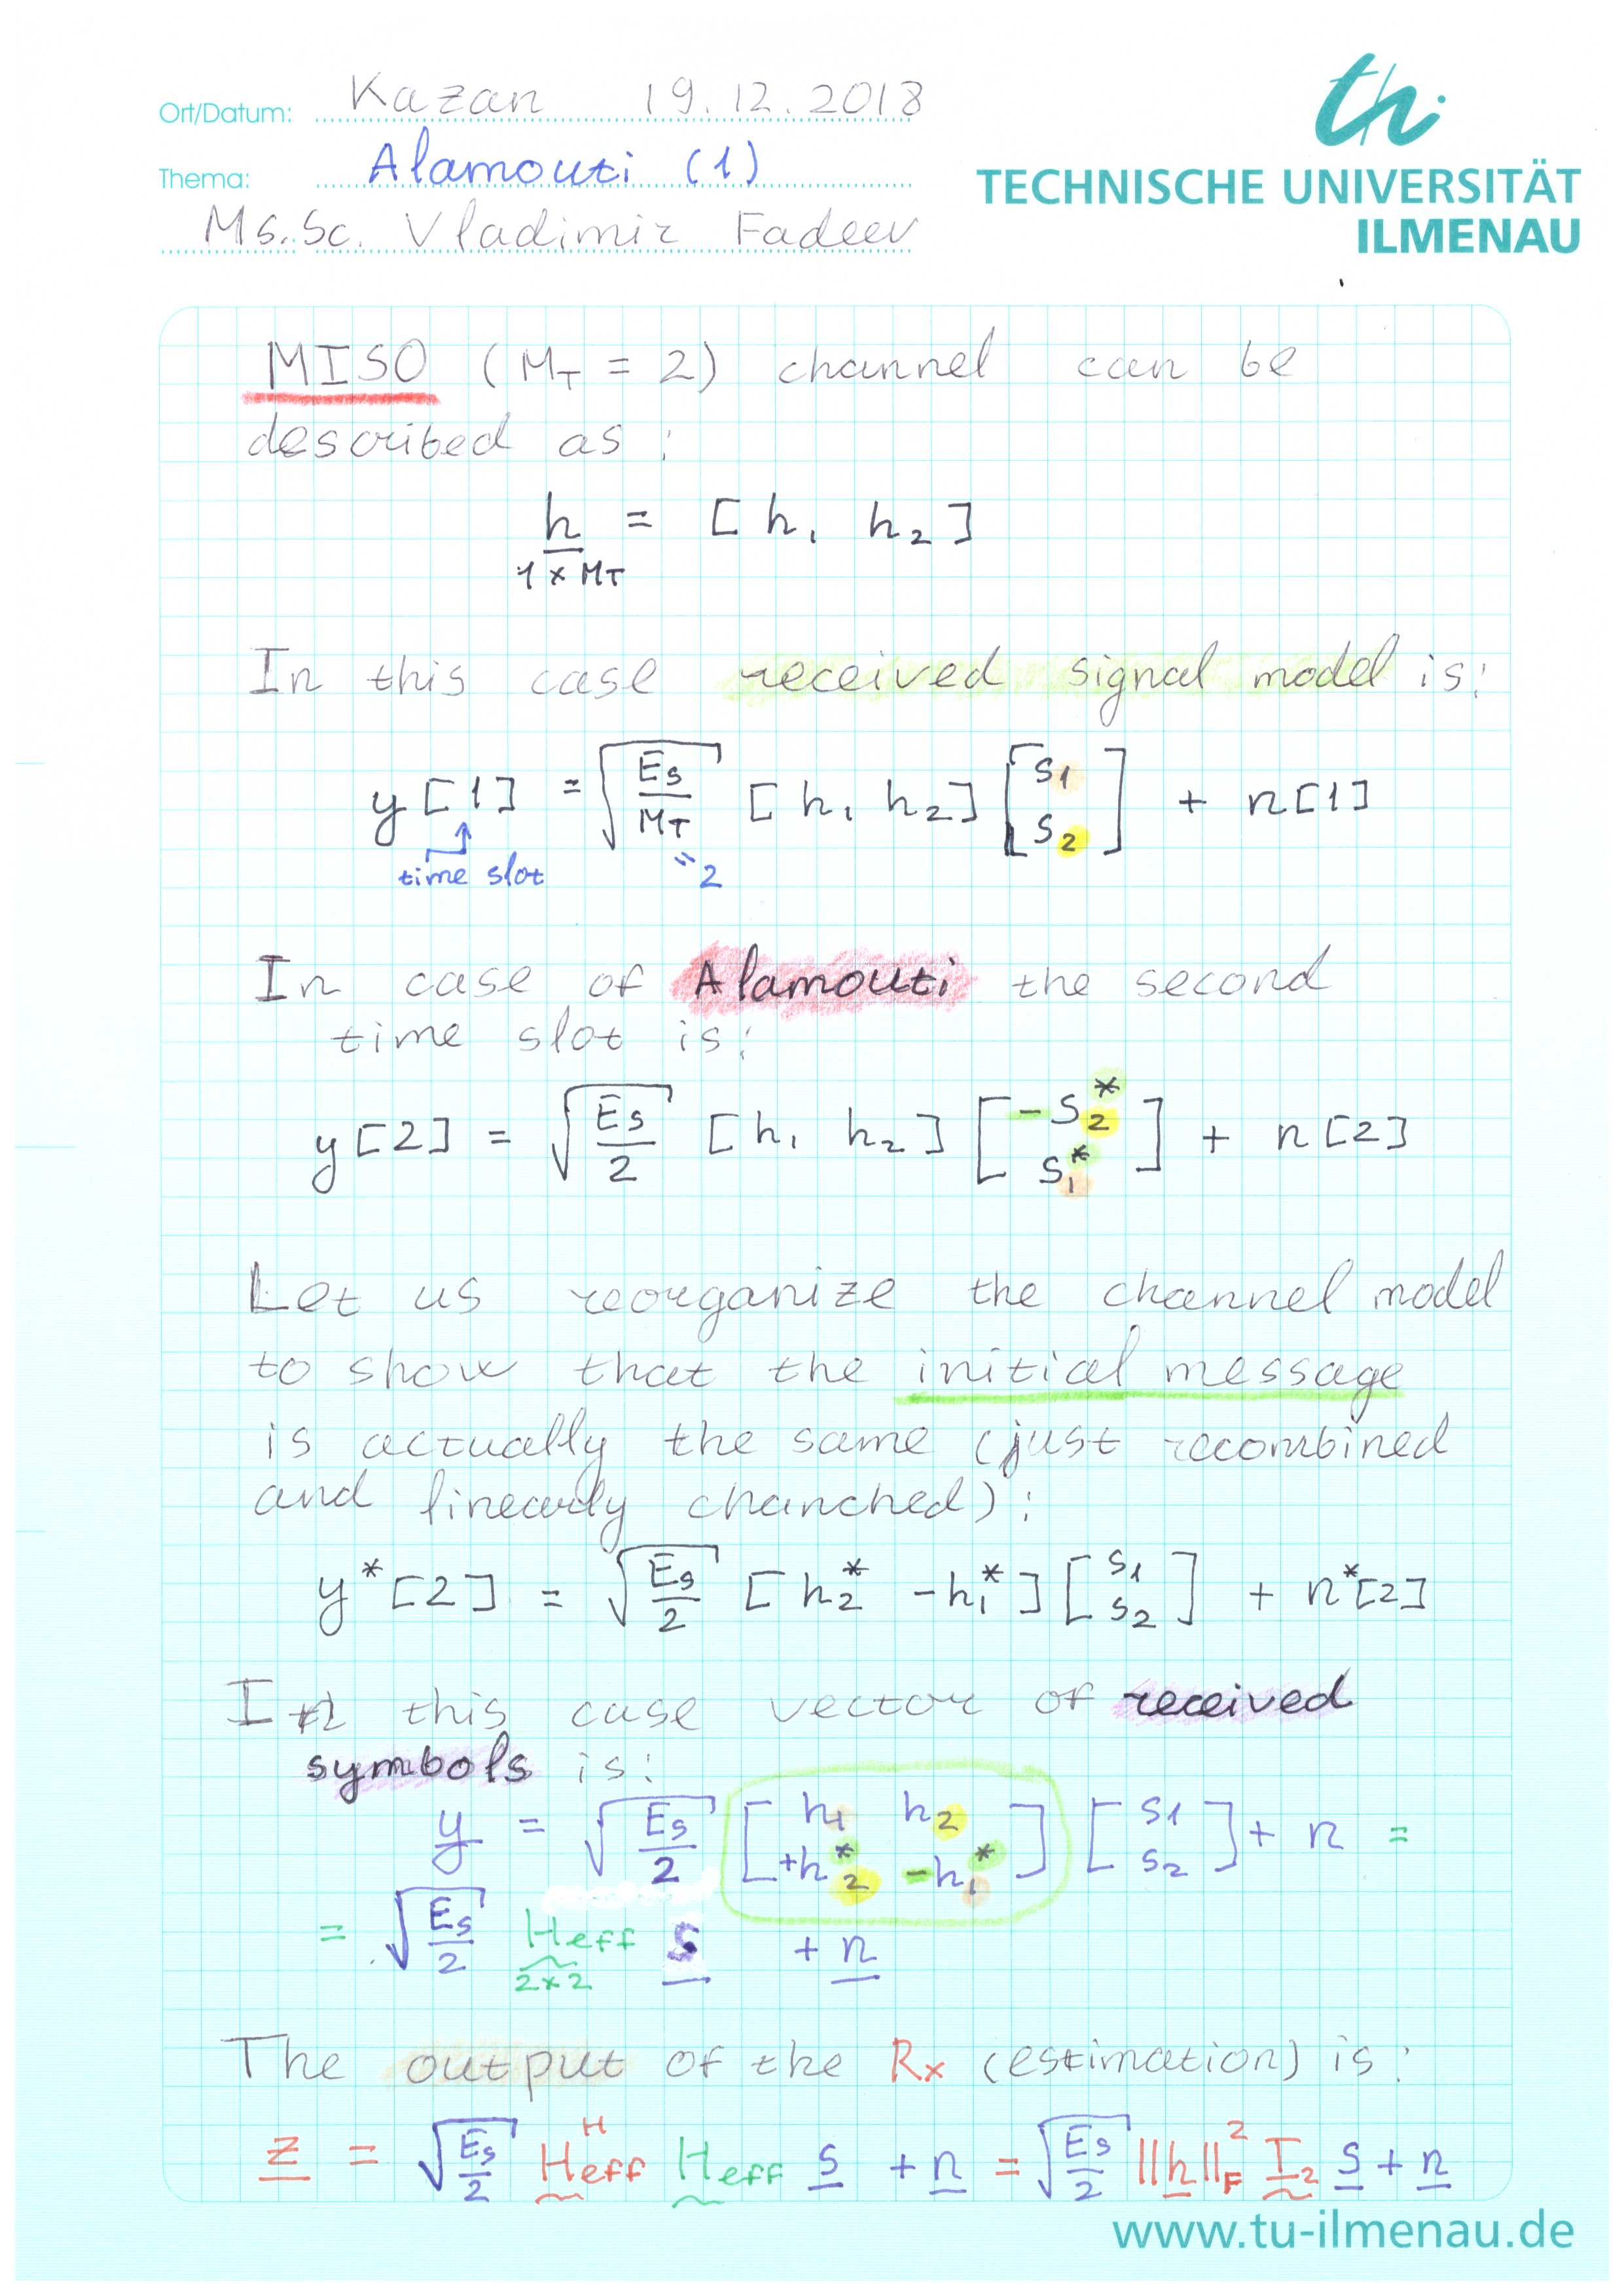 Ort/Datum: Kazan 19.12.2018
Thema: Alamouti (1)
Ms.Sc. Vladimir Fadeev
th
TECHNISCHE UNIVERSITÄT
ILMENAU
MISO (M_T = 2) channel can be
described as:
h = [h₁ h₂]
1 × M_T
In this case received signal model is:
y[1] = √(Es/M_T) [h₁ h₂] [s₁ s₂] + n[1]
time slot = 2
In case of Alamouti the second
time slot is:
y[2] = √(Es/2) [h₁ h₂] [-s₂* s₁*] + n[2]
Let us reorganize the channel model
to show that the initial message
is actually the same (just recombined
and linearly chanched):
y*[2] = √(Es/2) [h₂* -h₁*] [s₁ s₂] + n*[2]
In this case vector of received
symbols is:
y = √(Es/2) [h₁ h₂ +h₂* -h₁*] [s₁ s₂] + n =
= √(Es/2) Heff s + n
2×2
The output of the Rx (estimation) is:
z = √(Es/2) Heff^H Heff s + n = √(Es/2) ||h||_F² I₂ s + n
www.tu-ilmenau.de